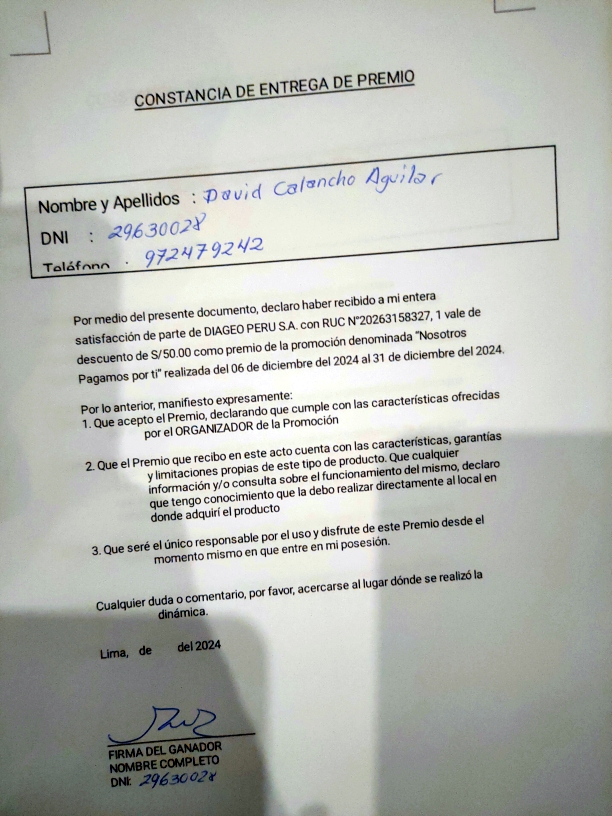 CONSTANCIA DE ENTREGA DE PREMIO
Nombre y Apellidos : David Calancho Aguilar
DNI : 29630028
Teléfono : 972479242
Por medio del presente documento, declaro haber recibido a mi entera
satisfacción de parte de DIAGEO PERU S.A. con RUC N°20263158327, 1 vale de
descuento de S/50.00 como premio de la promoción denominada "Nosotros
Pagamos por ti" realizada del 06 de diciembre del 2024 al 31 de diciembre del 2024.
Por lo anterior, manifiesto expresamente:
1. Que acepto el Premio, declarando que cumple con las características ofrecidas
por el ORGANIZADOR de la Promoción
2. Que el Premio que recibo en este acto cuenta con las características, garantías
y limitaciones propias de este tipo de producto. Que cualquier
información y/o consulta sobre el funcionamiento del mismo, declaro
que tengo conocimiento que la debo realizar directamente al local en
donde adquirí el producto
3. Que seré el único responsable por el uso y disfrute de este Premio desde el
momento mismo en que entre en mi posesión.
Cualquier duda o comentario, por favor, acercarse al lugar dónde se realizó la
dinámica.
Lima, de del 2024
FIRMA DEL GANADOR
NOMBRE COMPLETO
DNI: 29630028